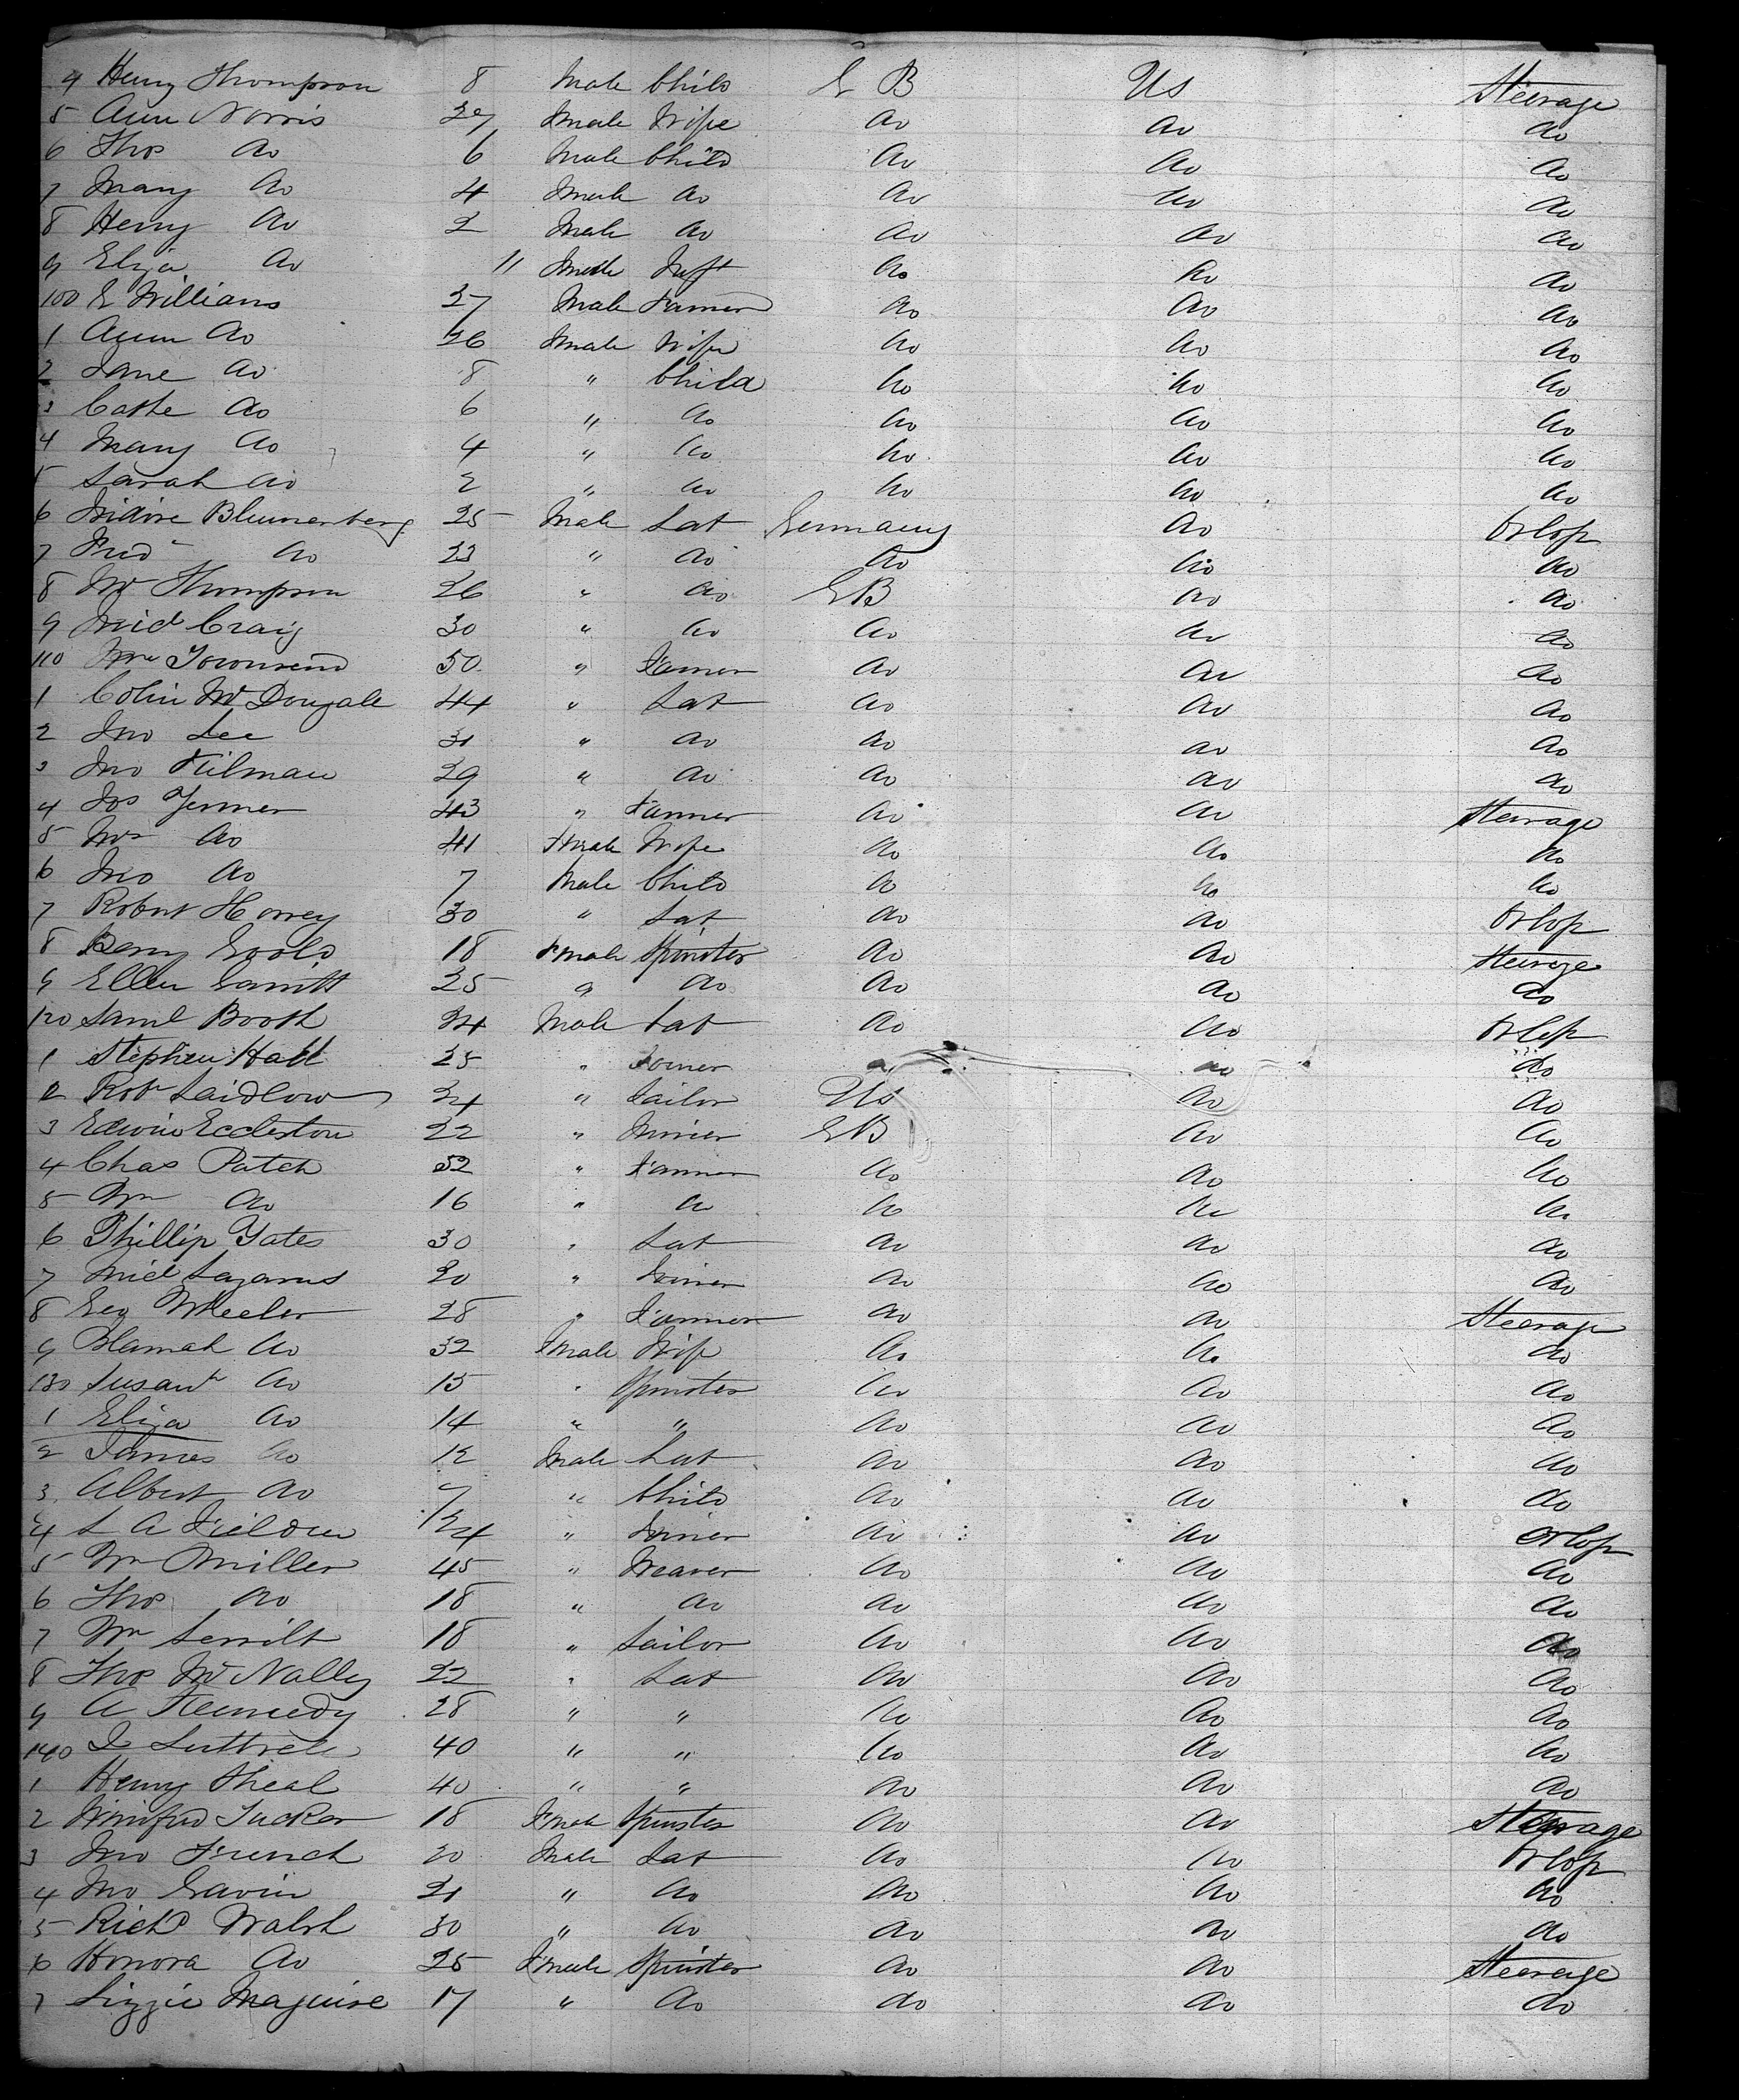 4 Henry Thompson 8 Male Child G B Us Steerage
5 Ann Norris 27 Fmale Wife do do do
6 Thos do 6 Male Child do do do
7 Mary do 4 Fmale do do do do
8 Henry do 2 Male do do do do
9 Eliza do 11 Fmale Inft do do do
100 E Williams 27 Male Farmer do do do
1 Ann do 26 Fmale Wife do do do
2 Jane do 8 " Child do do do
3 Cathe do 6 " do do do do
4 Mary do 4 " do do do do
5 Sarah do 2 " do do do do
6 Isidore Blumenberg 25 Male Lab Germany do Orlop
7 Fred do 23 " do do do do
8 Wm Thompson 26 " do GB do do
9 Mich Craig 30 " do do do do
110 Wm Townsend 50 " Farmer do do do
1 Colin McDougall 44 " Lab do do do
2 Jno Lee 31 " do do do do
3 Jno Kilman 29 " do do do do
4 Jos Jenner 43 " Farmer do do Steerage
5 Mrs do 41 Fmale Wife do do do
6 Jno do 7 Male Child do do do
7 Robert Horrey 30 " Lab do do Orlop
8 Goold 18 Fmale Spinster do do Steerage
9 Ellen Garritt 25 " do do do do
120 Saml Booth 24 Male Lab do do Orlop
1 Stephen Hall 25 " do do do
2 Robt Laidlow 24 " Tailor Us do do
3 Edwin Eccleston 22 " Joiner GB do do
4 Chas Patch 52 " Farmer do do do
5 Wm do 16 " do do do do
6 Phillip Yates 30 " Lab do do do
7 Mich Lazarus 20 " do do do
8 Geo Wheeler 28 " Farmer do do Steerage
9 Hannah do 32 Fmale Wife do do do
130 Susanh do 15 " Spinster do do do
1 Eliza do 14 " " do do do
2 James do 12 Male Lab do do do
3 Albert do 7 " Child do do do
4 L A Fielden 24 " do do Orlop
5 Wm Miller 45 " Weaver do do do
6 Thos do 18 " do do do do
7 Wm 18 " Tailor do do do
8 Thos McNally 22 " Lab do do do
9 A Kennedy 28 " " do do do
140 J Luttrell 40 " " do do do
1 Henry Sheal 40 " " do do do
2 Winifred Tucker 18 Fmale Spinster do do Steerage
3 Jno French 20 Male Lab do do Orlop
4 Jno Gavin 21 " do do do do
5 Richd Walsh 30 " do do do do
6 Honora do 25 Fmale Spinster do do Steerage
7 Lizzie Maguire 17 " do do do do